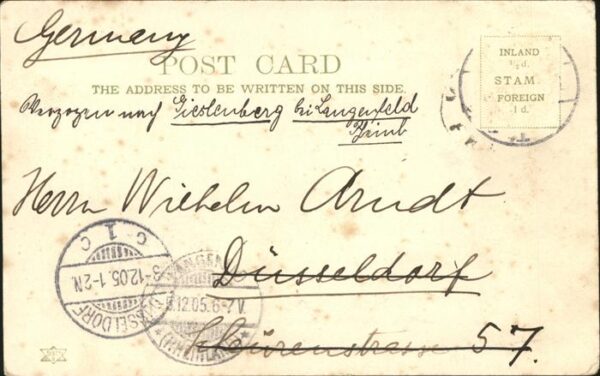 Germany
POST CARD
THE ADDRESS TO BE WRITTEN ON THIS SIDE.
INLAND
½d.
STAM
FOREIGN
1d.
Verzogen nach Gieslenberg bei Langenfeld
Rheinl
Herrn Wilhelm Arndt
Düsseldorf
57.
DÜSSELDORF
-12.05.1-2N.
1
c
LANGEN
.12.05.6-7V.
(RHEINLAND)